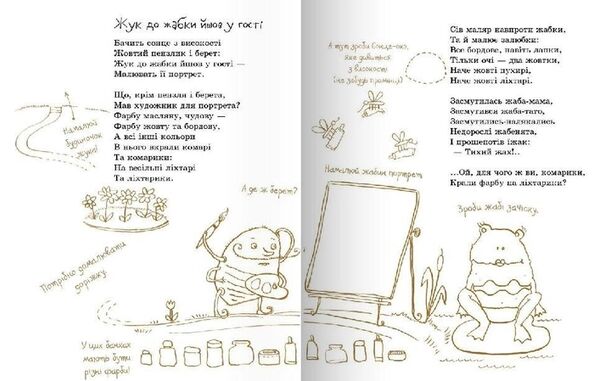 Жук до жабки йшов у гості
Бачить сонце з висності
Жовтий пензлик і берет:
Жук до жабки йшов у гості —
Малювать її портрет.
Що, крім пензля і берета,
Мав художник для портрета?
Фарбу масляну, чудову —
Фарбу жовту та бордову.
А всі інші кольори
В нього вкрали комарі
Та комарики:
На весільні ліхтарі
Та ліхтарики.
Намалюй
будиночок
жука!
А де ж берет?
Потрібно домалювати
доріжку.
У цих банках
мають бути
різні фарби!
А тут зроби Сонце-око,
яке дивиться
з висності
(не забудь промінці)
Намалюй жабин портрет
Зроби жабі зачіску.
Сів маляр навпроти жабки,
Та й малює залюбки:
Все бордове, навіть лапки,
Тільки очі — два жовтки,
Наче жовті пухирі,
Наче жовті ліхтарі.
Засмутилась жаба-мама,
Засмутився жаба-тато,
Засмутились-налякались
Недорослі жабенята,
І прошепотів їжак:
— Тихий жах!..
...Ой, для чого ж ви, комарики,
Крали фарбу на ліхтарики?